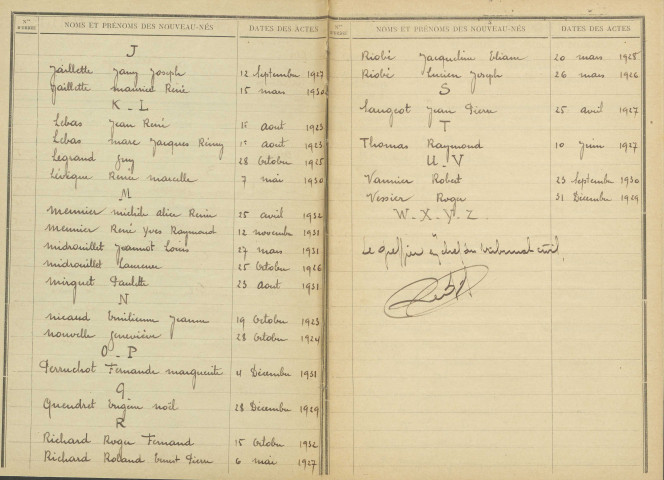 Nos D'ORDRE NOMS ET PRÉNOMS DES NOUVEAU-NÉS DATES DES ACTES
J
Jaillette Jany Joseph 12 Septembre 1927
Jaillette Maurice René 15 mars 1930
K-L
Lebas Jean René 1er aout 1923
Lebas Marc Jacques Rémy 1er aout 1923
Legrand Guy 28 Octobre 1925
Lévêque Renée Marcelle 7 mai 1930
M
Meunier Michèle Alice Renée 25 avril 1932
Meunier René Yves Raymond 12 novembre 1931
Midrouillet Jeannot Louis 27 mars 1931
Midrouillet 25 Octobre 1926
Mirguet Paulette 23 Aout 1931
N
Nicaud Emilienne Jeanne 19 Octobre 1923
Nouvelle Geneviève 28 Octobre 1924
O-P
Perruchot Fernande Marguerite 4 Décembre 1931
Q
Queudret Eugène Noël 28 Décembre 1929
R
Richard Roger Fernand 15 Octobre 1932
Richard Roland Ernest Pierre 6 mai 1927
Nos D'ORDRE NOMS ET PRÉNOMS DES NOUVEAU-NÉS DATES DES ACTES
Riobé Jacqueline Eliane 20 mars 1928
Riobé Lucien Joseph 26 mars 1926
S
Saugeot Jean Pierre 25 avril 1927
T
Thomas Raymond 10 Juin 1927
U-V
Vannier Robert 23 Septembre 1930
Vessier Roger 31 Décembre 1929
W-X-Y-Z.
Le greffier en chef du tribunal civil,